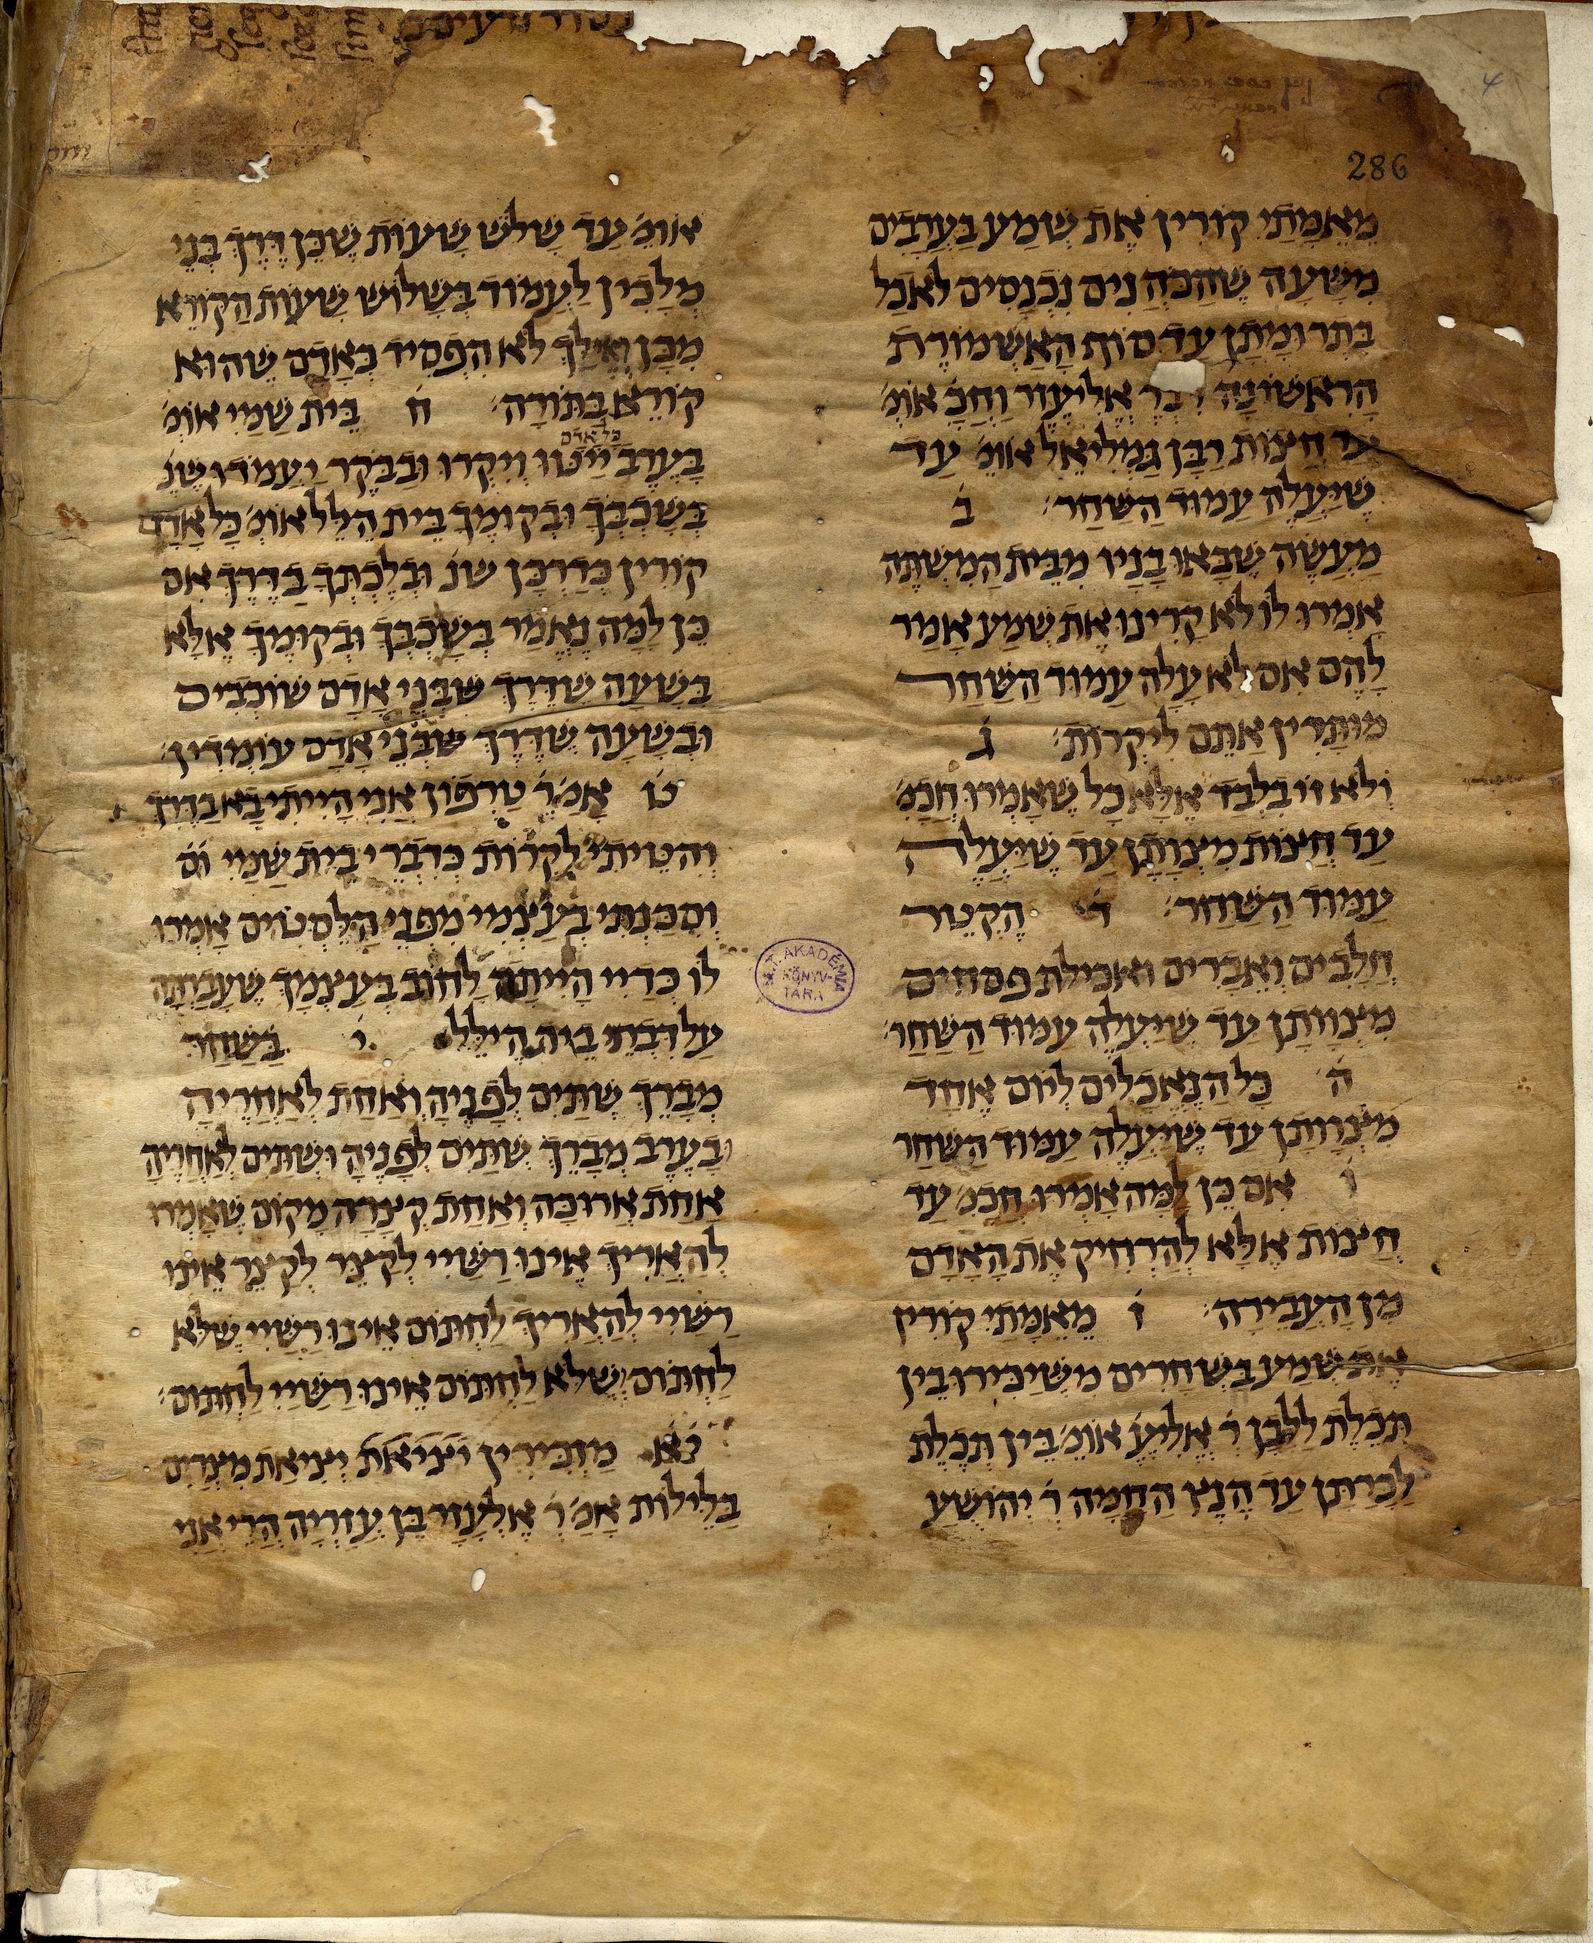 286
מֵאֵמָּתַי קוֹרִין אֶת שְׁמַע בַּעֲרָבִים
מִשָּׁעָה שֶׁהַכֹּהֲנִים נִכְנָסִים לֹאכַל
בִּתְרוּמָתָן עַד סוֹף הָאַשְׁמוֹרֶת
הָרִאשׁוֹנָה דִּבְרֵ אֱלִיעֶזֶר וַחֲכָ אוֹמְ
עד חֲצוֹת רַבָּן גַּמְלִיאֵל אוֹמֵ עַד
שֶׁיַּעֲלֶה עַמּוּד הַשַּׁחַר׃ ב
מַעֲשֶׂה שֶׁבָּאוּ בָנָיו מִבֵּית הַמִּשְׁתֶּה
אָמְרוּ לוֹ לֹא קָרִינוּ אֶת שְׁמַע אָמַר
לָהֶם אִם לֹא עָלָה עַמּוּד הַשַּׁחַר
מוּתָּרִין אַתֶּם לִיקְרוֹת׃ ג
וְלֹא זוֹ בִלְבַד אֶלָּא כָל שֶׁאָמְרוּ חֲכָמִ
עַד חֲצוֹת מִצְוָתָן עַד שֶׁיַּעֲלֶה
עַמּוּד הַשַּׁחַר׃ ד הֶקְטֵר
חֲלָבִים וְאֵבָרִים וַאֲכִילַת פְּסָחִים
מִצְוֹותָן עַד שֶׁיַּעֲלֶה עַמּוּד הַשַּׁחַר׃
ה כָּל הַנֶּאֱכָלִים לְיוֹם אֶחָד
מִצְוֹותָן עַד שֶׁיַּעֲלֶה עַמּוּד הַשַּׁחַר
ו אִם כֵּן לָמָּה אָמְרוּ חֲכָמִ עַד
חֲצוֹת אֶלָּא לְהַרְחִיק אֶת הָאָדָם
מִן הָעֲבֵירָה׃ ז מֵאֵמָּתַי קוֹרִין
אֶת שְׁמַע בַּשְּׁחָרִים מִשֶּׁיַּכִּירוּ בֵין
תְּכֵלֶת לַלָּבָן ר אֱלִיעֶ אוֹמֵ בֵּין תְּכֵלֶת
לַכָּרָתָן עַד הָנֵץ הַחַמָּה ר יְהוֹשֻׁעַ
אוֹמֵ עַד שְׁלֹשׁ שָׁעוֹת שֶׁכֵּן דֶּרֶךְ בְּנֵי
מְלָכִין לַעֲמוֹד בְּשָׁלוֹשׁ שָׁעוֹת הַקּוֹרֵא
מִכָּן וְאֵילַךְ לֹא הִפְסִיד כְּאָדָם שֶׁהוּא
קוֹרֵא בַתּוֹרָה׃ ח בֵּית שַׁמַּי אוֹמְ
כל אדם
בָּעֶרֶב יַטּוּ וְיִקְרוּ וּבַבֹּקֶר יַעַמְדוּ שֶׁנֶּ
בְּשָׁכְבְּךָ וּבְקוּמֶךָ בֵּית הִלֵּל אוֹמְ כָּל אָדָם
קוֹרִין כְּדַרְכָּן שנ וּבְלֶכְתְּךָ בַדֶּרֶךְ אִם
כֵּן לָמָּה נֶאֱמַר בְּשָׁכְבְּךָ וּבְקוּמֶךָ אֶלָּא
בְּשָׁעָה שֶׁדֶּרֶךְ שֶׁבְּנֵי אָדָם שׁוֹכְבִים
וּבְשָׁעָה שֶׁדֶּרֶךְ שֶׁבְּנֵי אָדָם עוֹמְדִין׃
ט אָמַ ר טַרְפוֹן אֲנִי הָיִיתִי בָא בַדֶּרֶךְ
וְהִטֵּיתִי לִקְרוֹת כְּדִבְרֵי בֵית שַׁמַּי
וְסִכַּנְתִּי בְעַצְמִי מִפְּנֵי הַלִּסְטִים אָמְרוּ
לוֹ כְּדַיי הָיִיתָה לָחוּב בְּעַצְמְךָ שֶׁעָבַרְתָּה
עַל דִּבְרֵי בֵית הִילֵּל י בַּשַּׁחַר
מְבָרֵךְ שְׁתַּיִם לְפָנֶיהָ וְאַחַת לְאַחֲרֶיהָ
וּבָעֶרֶב מְבָרֵךְ שְׁתַּיִם לְפָנֶיהָ וּשְׁתַּיִם לְאַחֲרֶיהָ
אַחַת אֲרוּכָּה וְאַחַת קְצָרָה מְקוֹם שֶׁאָמְרוּ
לְהַאֲרִיךְ אֵינוּ רַשַּׁיי לְקַצֵּר לְקַצֵּר אֵינוּ
רַשַּׁיי לְהַאֲרִיךְ לַחְתּוֹם אֵינוּ רַשַּׁיי שֶׁלֹּא
לַחְתּוֹם וְשֶׁלֹּא לַחְתּוֹם אֵינוּ רַשַּׁיי לַחְתּוֹם׃
יא מַזְכִּירִין יְצִיאַת יְצִיאַת מִצְרַיִם
בַּלֵּילוֹת אָמַ ר אֶלְעָזָר בֶּן עֲזַרְיָה הֲרֵי אֲנִי
M.T. AKADÉMIA KÖNYVTÁRA